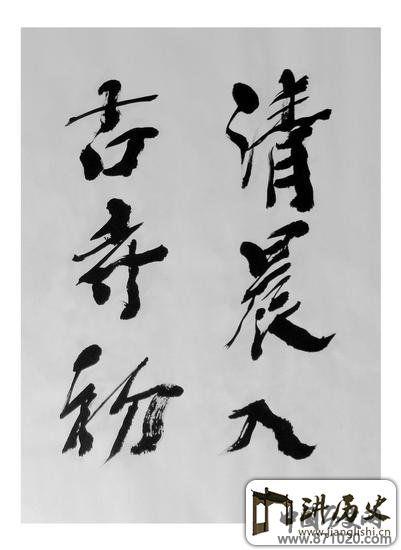 清晨入
古寺初
讲历史
www.jianglishi.cn
www.871020.com